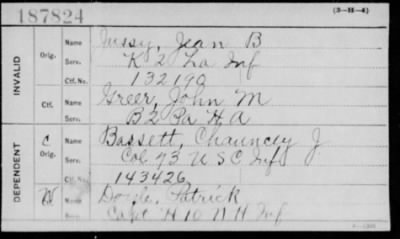 187824
(3-H-4)
INVALID
Orig. Name Jussy, Jean B
Serv. K 2 La Inf
Ctf. No. 132190
Ctf. Name Greer, John M
Serv. B 2 Pa H A
DEPENDENT
C Orig. Name Bassett, Chauncey J
Serv. Col 73 U S C Inf
Ctf. No. 143426
W Ctf. Name Doyle, Patrick
Serv. Capt H 10 N H Inf